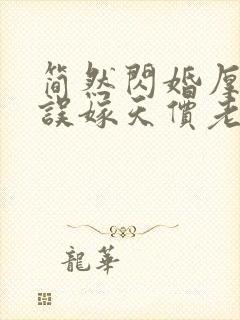 简然閃婚厚
誤嫁天價老
龍華